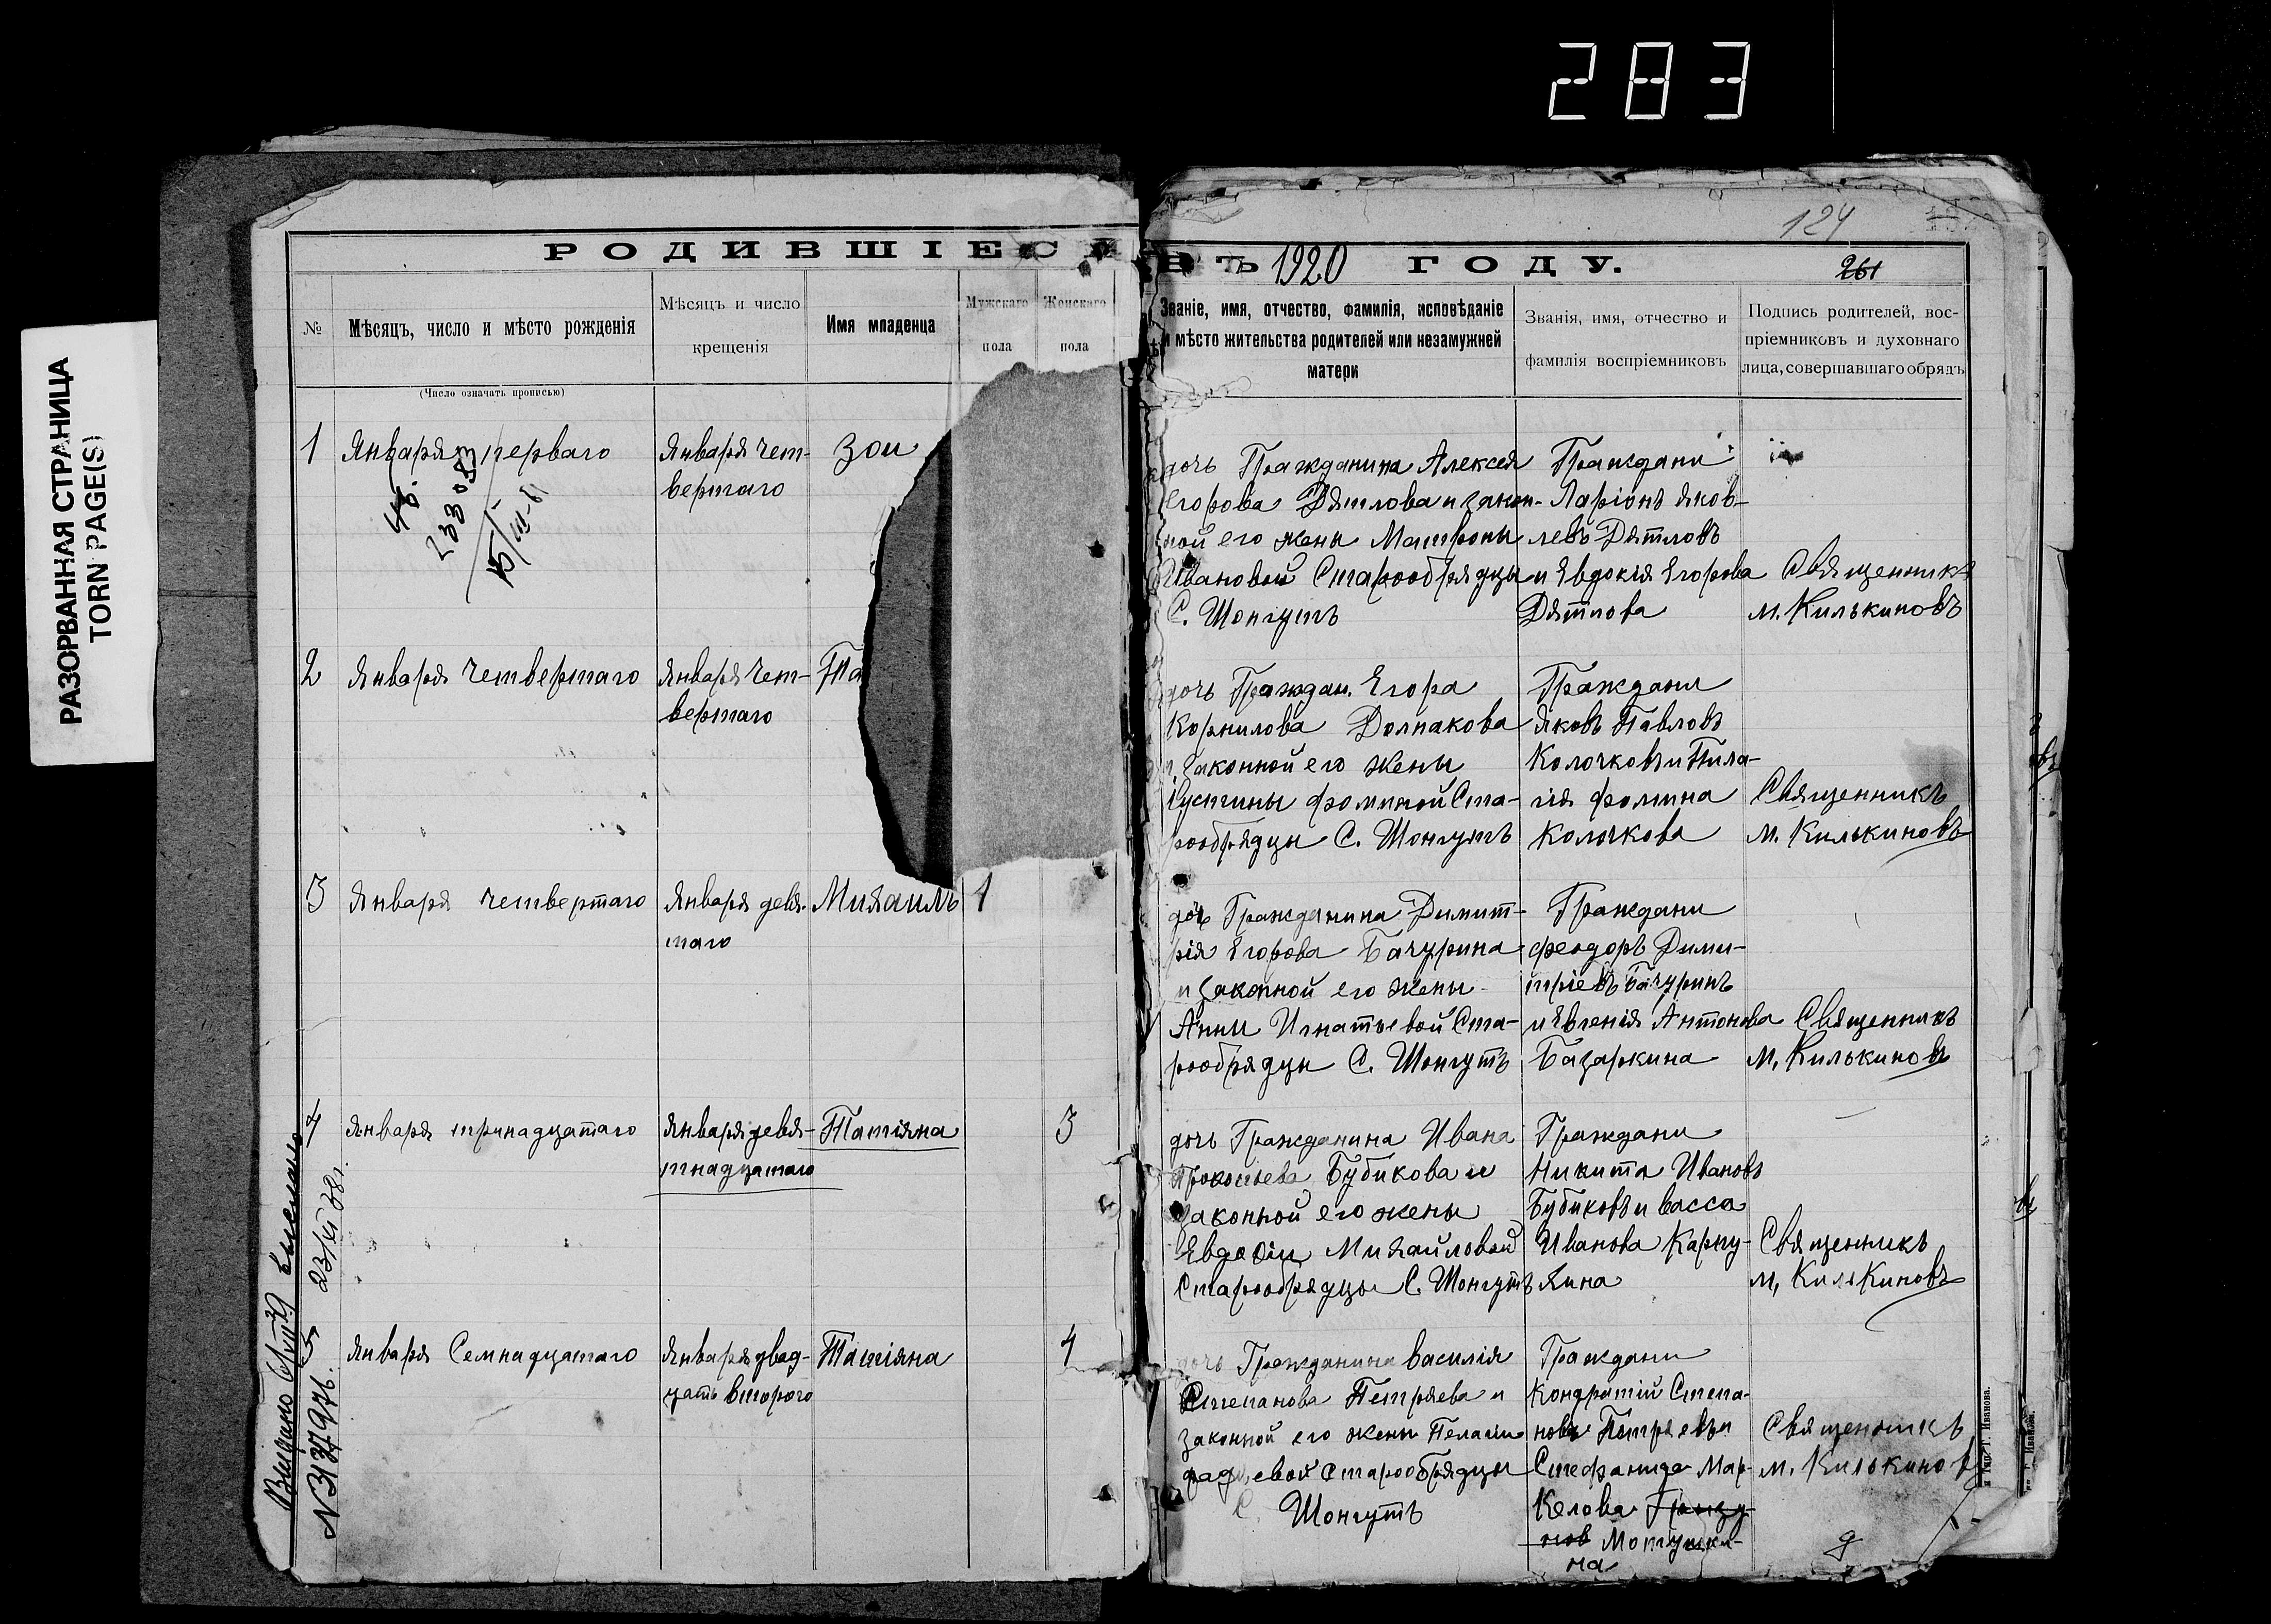 283
РАЗОРВАННАЯ СТРАНИЦА
TORN PAGE(S)
124
РОДИВШІЕСЯ ВЪ 1920 ГОДУ.
261
№
Мѣсяцъ, число и мѣсто рожденія
(Число означать прописью)
Мѣсяцъ и число
крещенія
Имя младенца
Мужскаго
пола
Женскаго
пола
Званіе, имя, отчество, фамилія, исповѣданіе
и мѣсто жительства родителей или незамужней
матери
Званія, имя, отчество и
фамилія воспріемниковъ
Подпись родителей, вос-
пріемниковъ и духовнаго
лица, совершавшаго обрядъ
1
Января перваго
Января чет-
вертаго
Зои
дочь Гражданина Алексея
Егорова Дятлова и закон-
ной его жены Матроны
Ивановой Старообрядцы
С. Шонгутъ
Граждани
Ларіонъ Яков-
левъ Дятловъ
и Евдокія Егорова
Дятлова
Священникъ
М. Килькиновъ
2
Января четвертаго
Января чет-
вертаго
Та
дочь Граждан. Егора
Корнилова Долпакова
и законной его жены
Густины Фоминой Ста-
рообрядцы С. Шонгутъ
Граждани
Яковъ Павловъ
Колочковъ и Пила-
гія Фомина
Колочкова
Священникъ
М. Килькиновъ
3
Января четвертаго
Января девя-
таго
Михаилъ
1
Гражданина Димит-
рія Егорова Бачурина
и законной его жены
Анны Игнатьевой Ста-
рообрядцы С. Шонгутъ
Граждани
Феодоръ Дими-
тріевъ Бачуринъ
и Евгенія Антонова
Базаркина
Священникъ
М. Килькиновъ
4
Января тринадцатаго
Января девя-
тнадцатаго
Татіяна
3
дочь Гражданина Ивана
Прокопьева Бубикова и
законной его жены
Евдокіи Михайловой
Старообрядцы С. Шонгутъ
Граждани
Никита Ивановъ
Бубиковъ и Васса
Иванова Карпу-
хина
Священникъ
М. Килькиновъ
5
Января Семнадцатаго
Января двад-
цать втораго
Татіяна
4
дочь Гражданина Василія
Степанова Петряева и
законной его жены Пелагии
Фадеевой Старообрядцы
С. Шонгутъ
Граждани
Кондратій Степа-
новъ Петряевъ и
Стефанида Мар-
келова
Монгушки-
на
Священникъ
М. Килькинов
Выдано
23/VI 38г.
Тип. Г. Иванова.